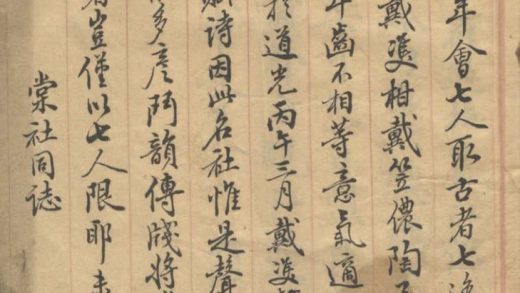 年會七人取古者七逸
戴䕶相戴笠儂陶
年齒不相等意氣適
於道光丙午三月戴䕶
詩因此名社惟是聲
多彥鬥韻傳牋將
豈僅以七人限耶
棠社同誌